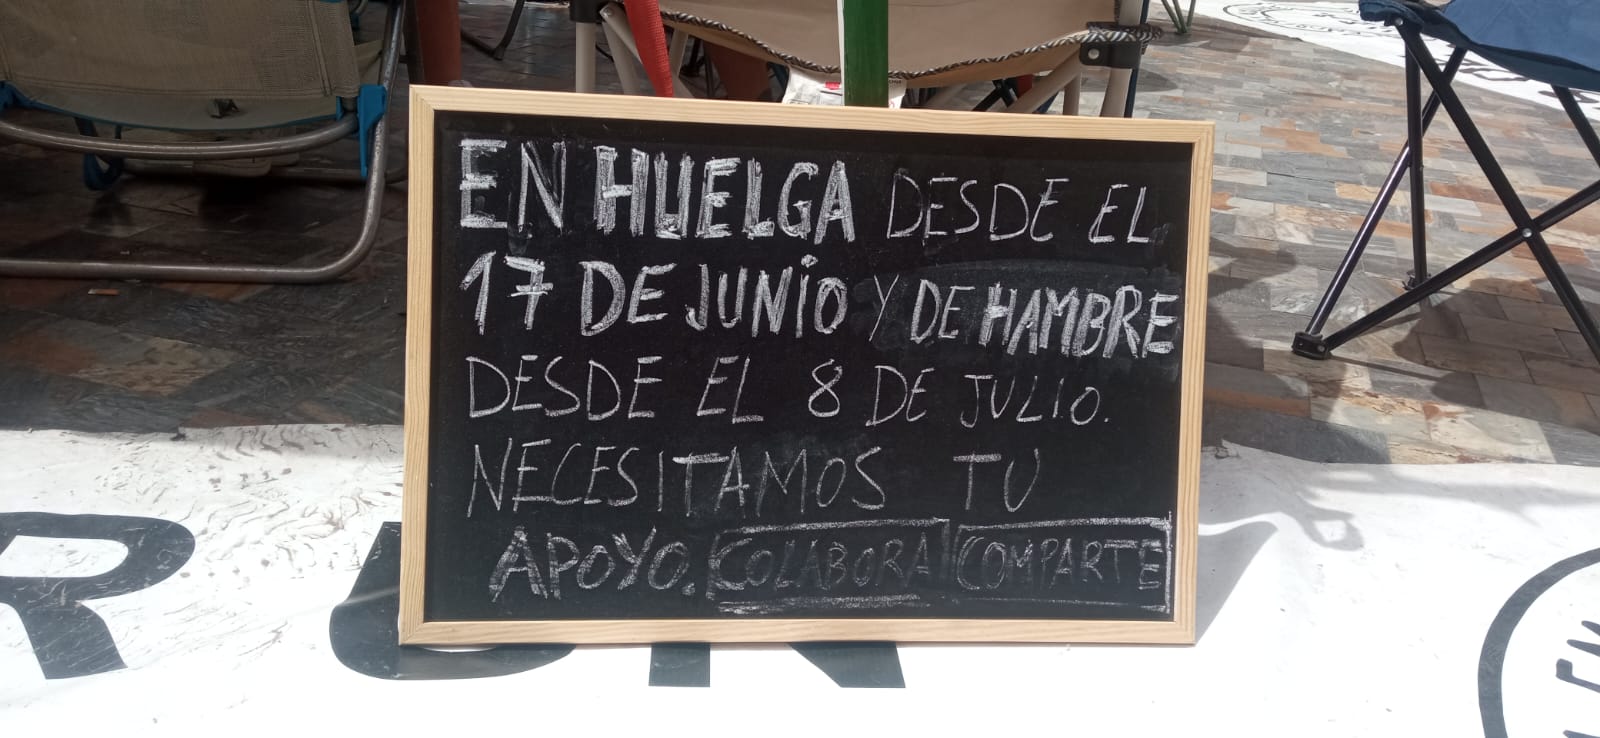 EN HUELGA DESDE EL
17 DE JUNIO Y DE HAMBRE
DESDE EL 8 DE JULIO.
NECESITAMOS TU
APOYO. COLABORA COMPARTE